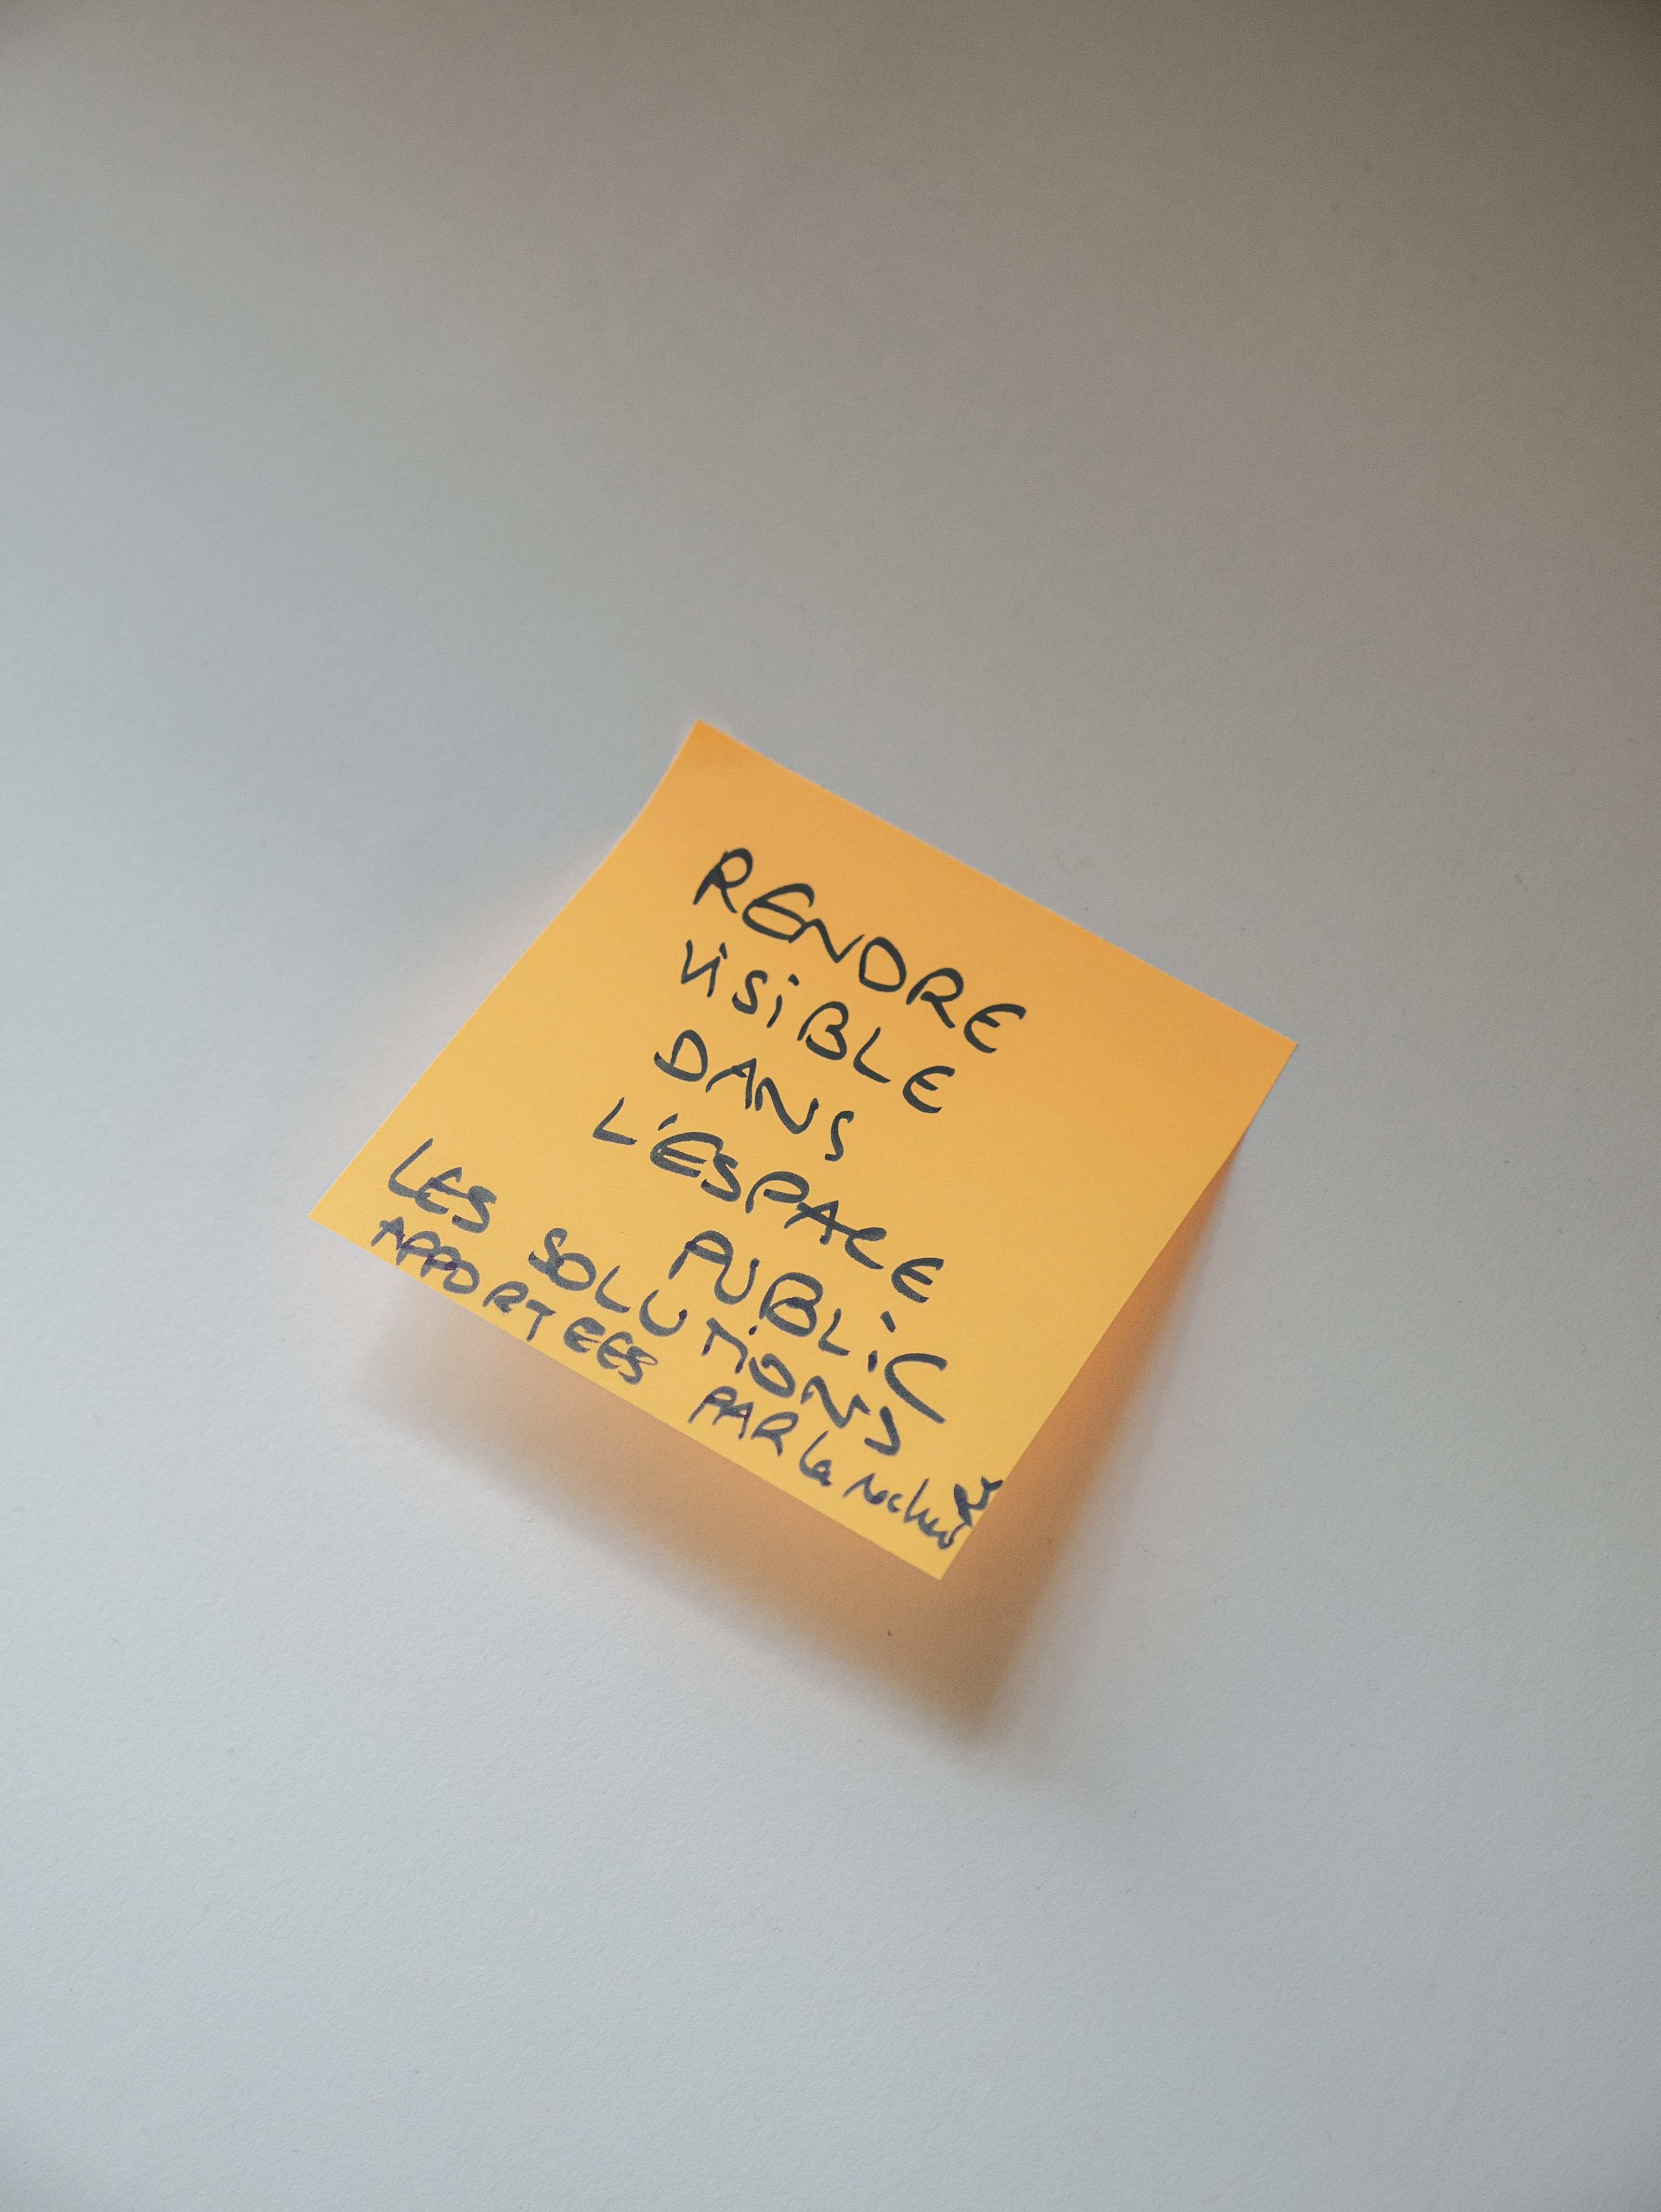 RENDRE
ViSiBLE
DANS
L'ESPACE
PUBLiC
LES SOLUTiONS
APPORTEES PAR la